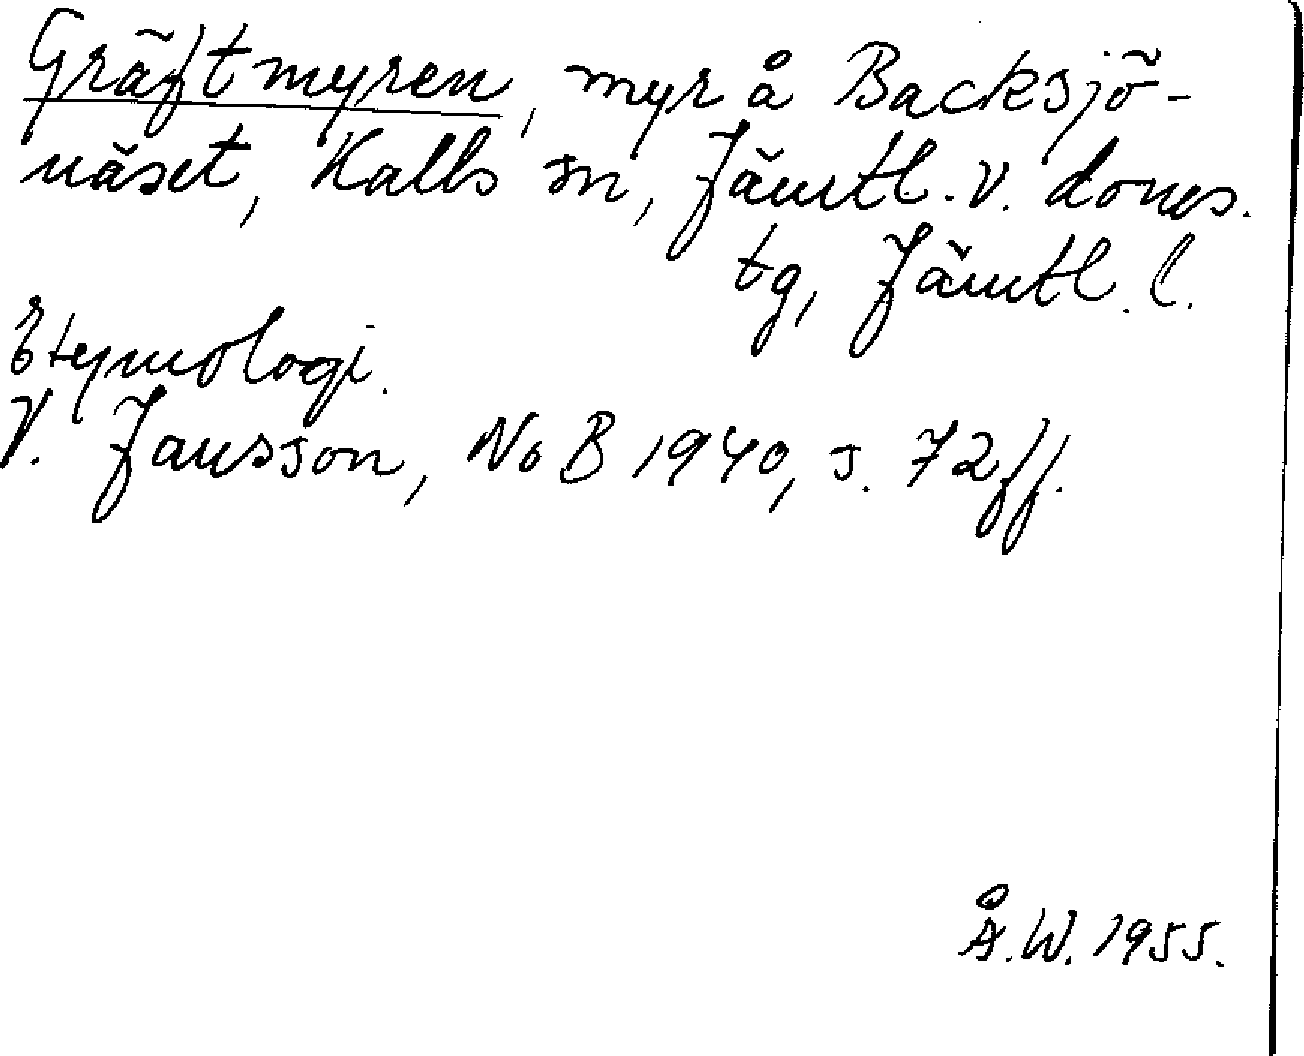 Gräftmyren, myr å Backsjö-
näset, Kalls sn, Jämtl. v. doms.
tg, Jämtl. l.
Etymologi.
V. Jansson, NoB 1940, s. 72ff.
Å.W. 1955.